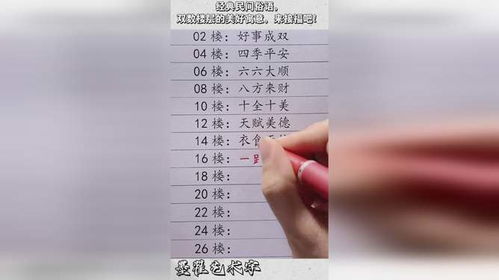 经典民间俗语,
双数楼层的美好寓意，来接福吧!
02 楼：好事成双
04 楼：四季平安
06 楼：六六大顺
08 楼：八方来财
10 楼：十全十美
12 楼：天赋美德
14 楼：衣食
16 楼：一
18 楼：
20 楼：
22 楼：
24 楼：
26 楼：